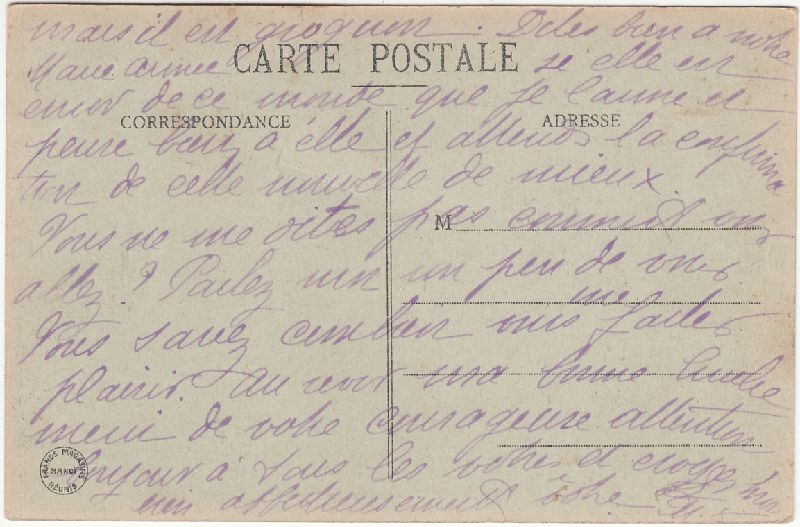 mais il est grognon. Dites bien à notre
Marie Aimée si elle est
CARTE POSTALE
encor de ce monde que je l'aime et
CORRESPONDANCE
ADRESSE
pense bien à elle et attends la confirma
tion de cette nouvelle de mieux.
Vous ne me dites pas comment vous
M
allez? Parlez moi un peu de vous
Vous savez combien vous me faites
plaisir. Au revoir ma bonne
merci de votre courageuse attention
bonjour à tous les vôtres et croyez moi
bien affectueusement vôtre
GRANDS MAGASINS
HANOI
RÉUNIS